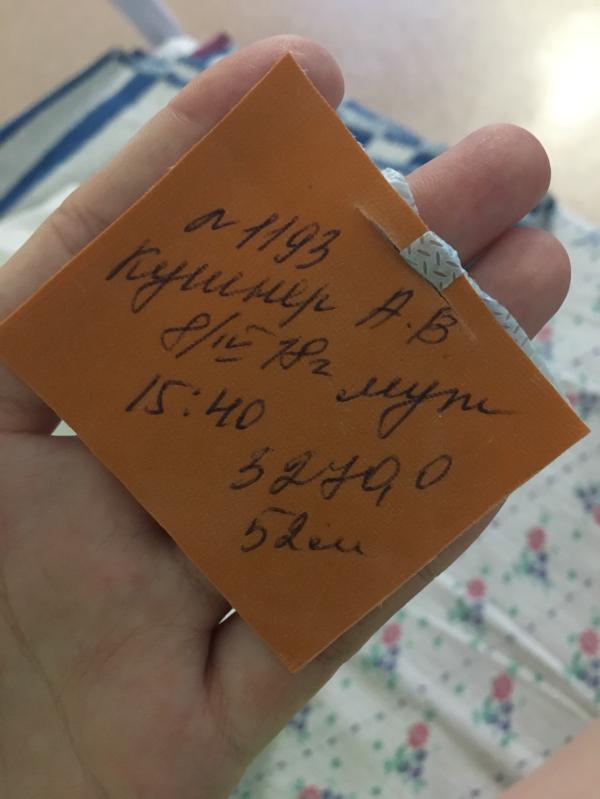 n 1193
Кушнер А.В
8/IV 18г муж
15:40
3270,0
52см